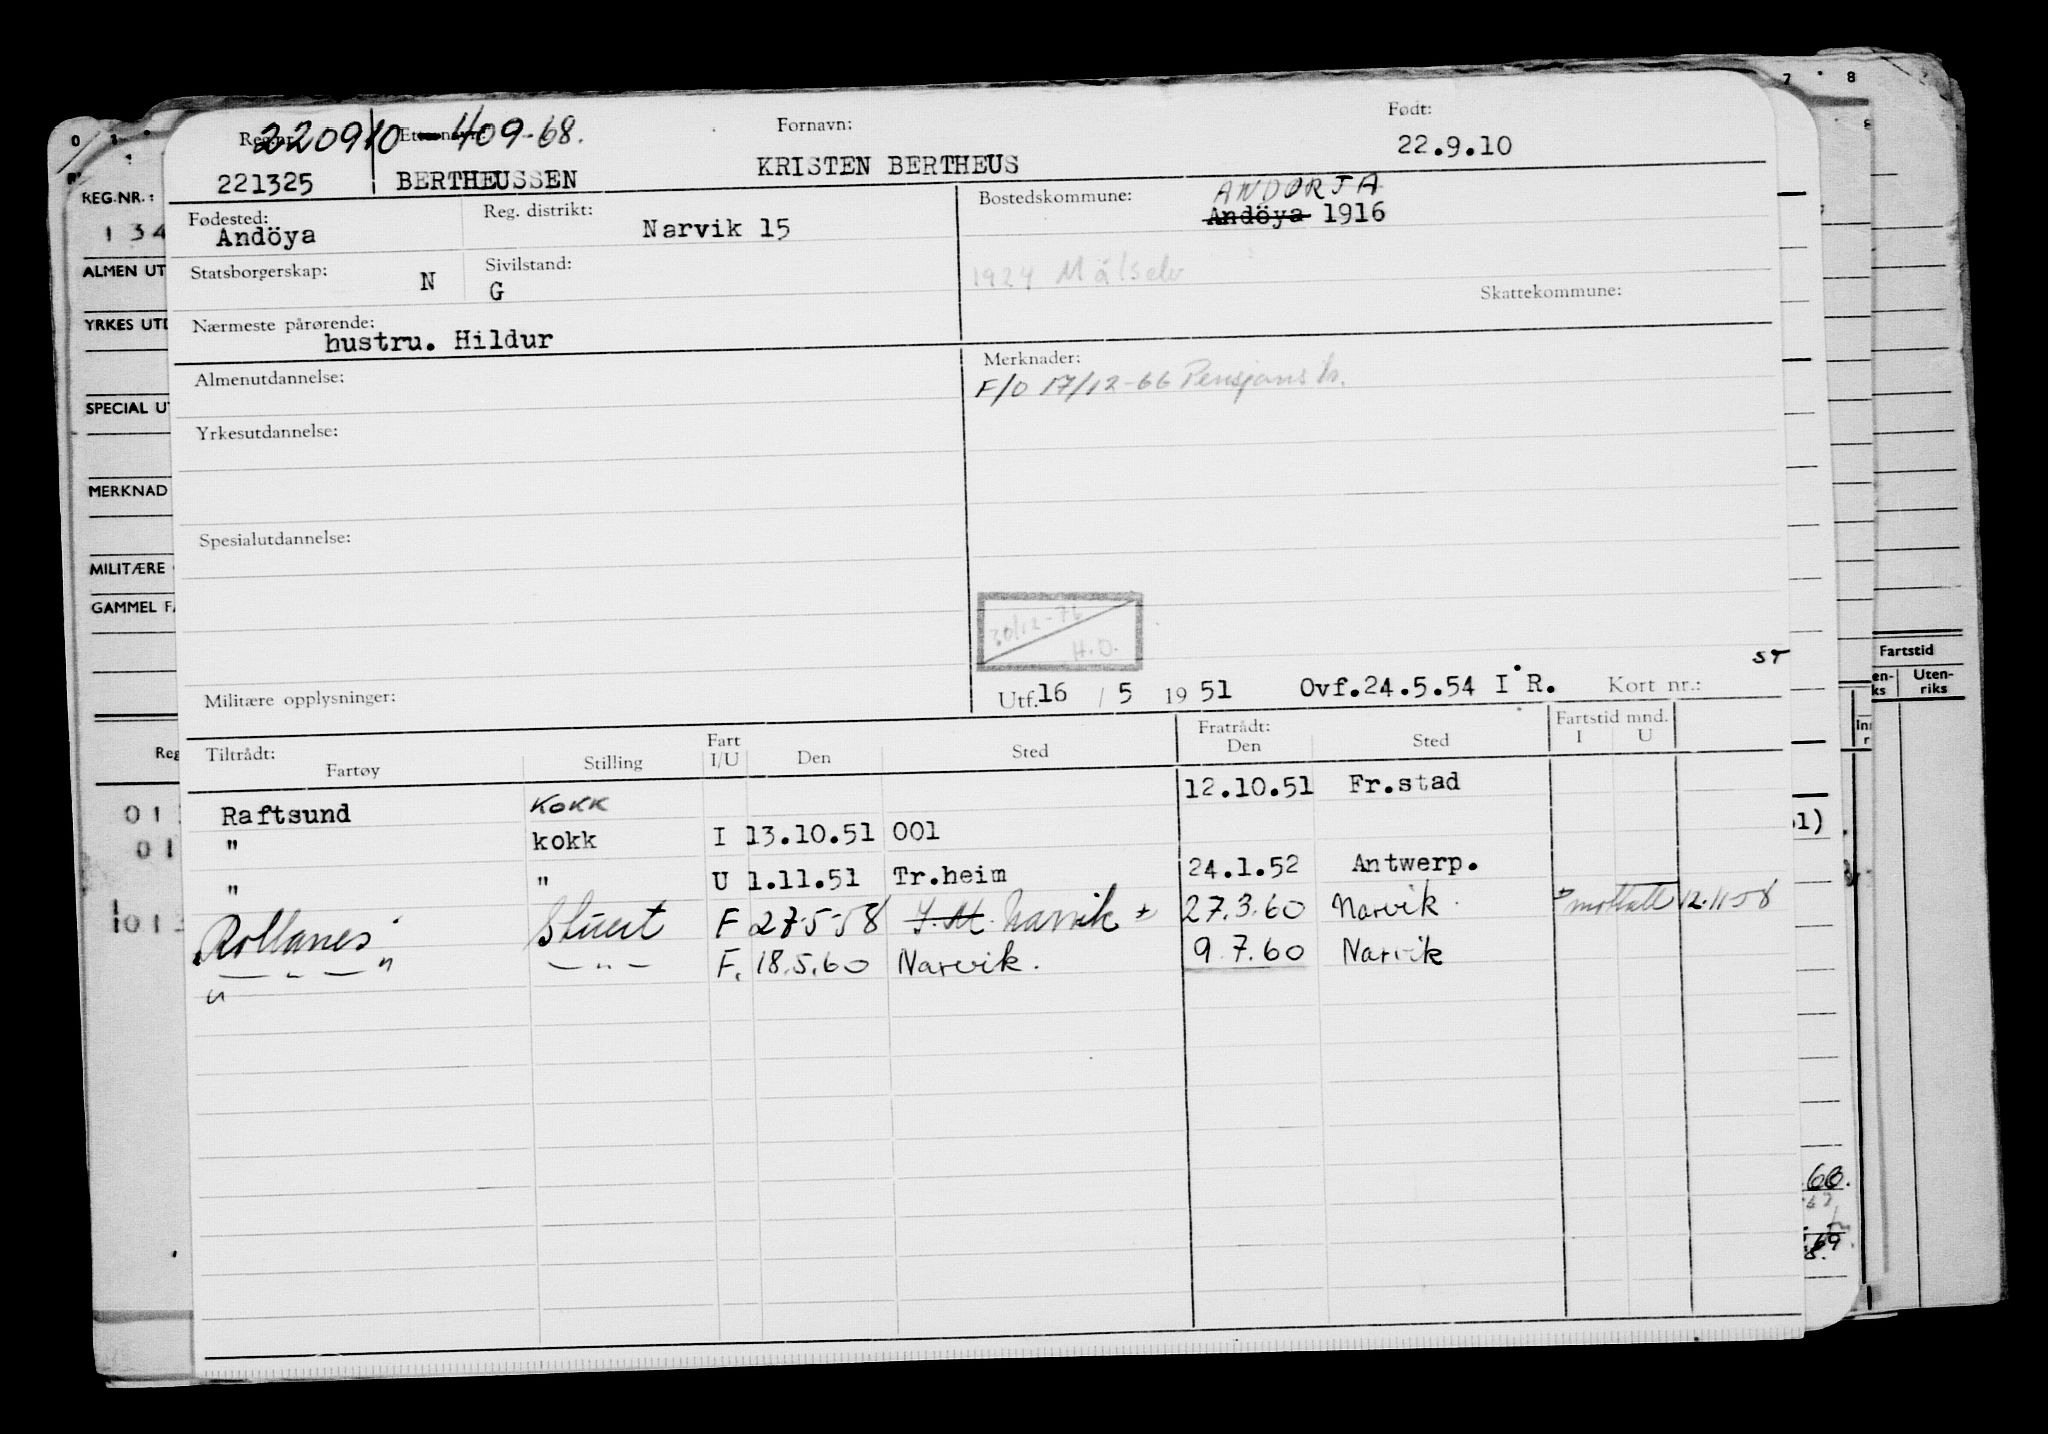 7 8
0 1
REG.NR.:
1 34
ALMEN UT
YRKES UTD
SPECIAL UT
MERKNAD
MILITÆRE
GAMMEL FA
Reg
0 1
0 1
1013
Reg.nr. Etternavn: Fornavn: Født:
220910 40968.
221325 BERTHEUSSEN KRISTEN BERTHEUS 22.9.10
Fødested: Reg. distrikt: Bostedskommune: ANDØRJA
Andöya Narvik 15 Andöya 1916
Statsborgerskap: N Sivilstand: G
1924 Målselv
Skattekommune:
Nærmeste pårørende:
hustru. Hildur
Almenutdannelse: Merknader:
F/O 17/12-66 Pensjons tr.
Yrkesutdannelse:
Spesialutdannelse:
30/12-76
H.O.
ST
Militære opplysninger: Utf. 16 / 5 19 51 Ovf. 24.5.54 I R. Kort nr.:
Tiltrådt: Fart Fratrådt: Fartstid mnd.
Fartøy Stilling I/U Den Sted Den Sted I U
Raftsund KOKK 12.10.51 Fr.stad
" kokk I 13.10.51 001
" " U 1.11.51 Tr.heim 24.1.52 Antwerp.
Rollanes Stuert F 27-5-58 J.M. Narvik ± 27.3.60 Narvik ± mottatt 12.11-58
— " — " — " — F. 18.5.60 Narvik. 9.7.60 Narvik
"
Fartstid
Uten-
riks
51)
60.
69.